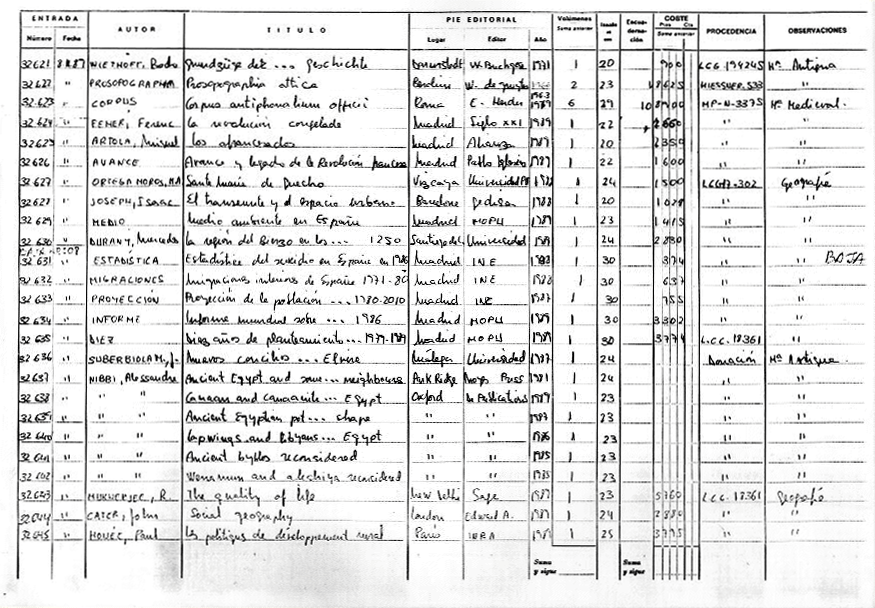 ENTRADA AUTOR TITULO PIE EDITORIAL Volúmenes COSTE PROCEDENCIA OBSERVACIONES
Número Fecha Lugar Editor Año Suma anterior Suma anterior
32621 geschichte W. Buchges 1971 1 20 900 LCG. 194245 Hª Antigua
32622 " PROSOPOGRAPHIA Prosopographia attica Berolini W. de 2 23 "
32623 " CORPUS Corpus antiphonalium officii Roma E. Herder 6 29 MP-N-3375 Hª Medieval
32624 " FEHER, Ferenc La revolución congelada Madrid Siglo XXI 1989 1 22 2660 " "
32625 " ARTOLA, Miguel Los afrancesados Madrid Alianza 1989 1 20 2350 " "
32626 " AVANCE Avance y legado de la Revolución francesa Madrid Pablo Iglesias 1989 1 22 1600 " "
32627 " Santa María de Vizcaya Universidad 1 24 1500 LCG17-302 Geografía
" JOSEPH, Isaac El transeunte y el espacio urbano Barcelona Gedisa 1988 1 20 " "
32629 " MEDIO Medio ambiente en España Madrid MOPU 1989 1 23 1415 " "
32630 " DURANY, Mercedes La región del Bierzo en los ... 1250 Santiago de Universidad 1989 1 24 2880 " "
32631 " ESTADÍSTICA Estadística del suicidio en España en Madrid INE 1988 1 30 374 " " BAJA
32632 " MIGRACIONES Migraciones interiores de España 1971-80 Madrid INE 1988 1 30 637 " "
32633 " PROYECCION Proyección de la población ... 1980-2010 Madrid INE 1987 1 30 755 " "
32634 " INFORME Informe mundial sobre ... 1986 Madrid MOPU 1989 1 30 3302 " "
32635 " DIEZ Diez años de planteamiento ... 1979-1989 Madrid MOPU 1989 1 30 3774 L.C.C. 18361 "
32636 " SUBERBIOLA M., J. Nuevos concilios ... Elvira Malaga Universidad 1987 1 24 Donación Hª Antigua
32637 " NIBBI, Alessandra Ancient Egypt and some ... neighbours Park Ridge Noyes Press 1981 1 24 " "
32638 " " " Canaan and canaanite ... Egypt Oxford Publications 1989 1 23 " "
32639 " " " Ancient Egyptian pot ... shape " " 1987 1 23 " "
32640 " " " Lapwings and Libyans ... Egypt " " 1986 1 23 " "
32641 " " " Ancient byblos reconsidered " " 1985 1 23 " "
32642 " " " Wenamun and alashiya reconsidered " " 1985 1 23 " "
32643 " MUKHERJEE, R. The quality of life New Delhi Sage 1989 1 23 5760 L.C.C. 18361 Geografía
32644 " CATER, John Social geography London Edward A. 1989 1 24 2880 " "
32645 " HOUÉE, Paul Les politiques de développement rural Paris INRA 1989 1 25 3775 " "
Suma y sigue Suma y sigue